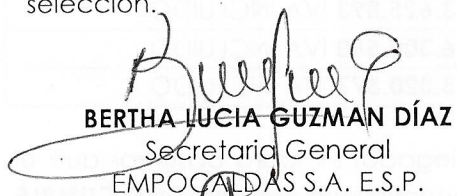 selección.
BERTHA LUCIA GUZMAN DÍAZ
Secretaria General
EMPOCALDAS S.A. E.S.P.